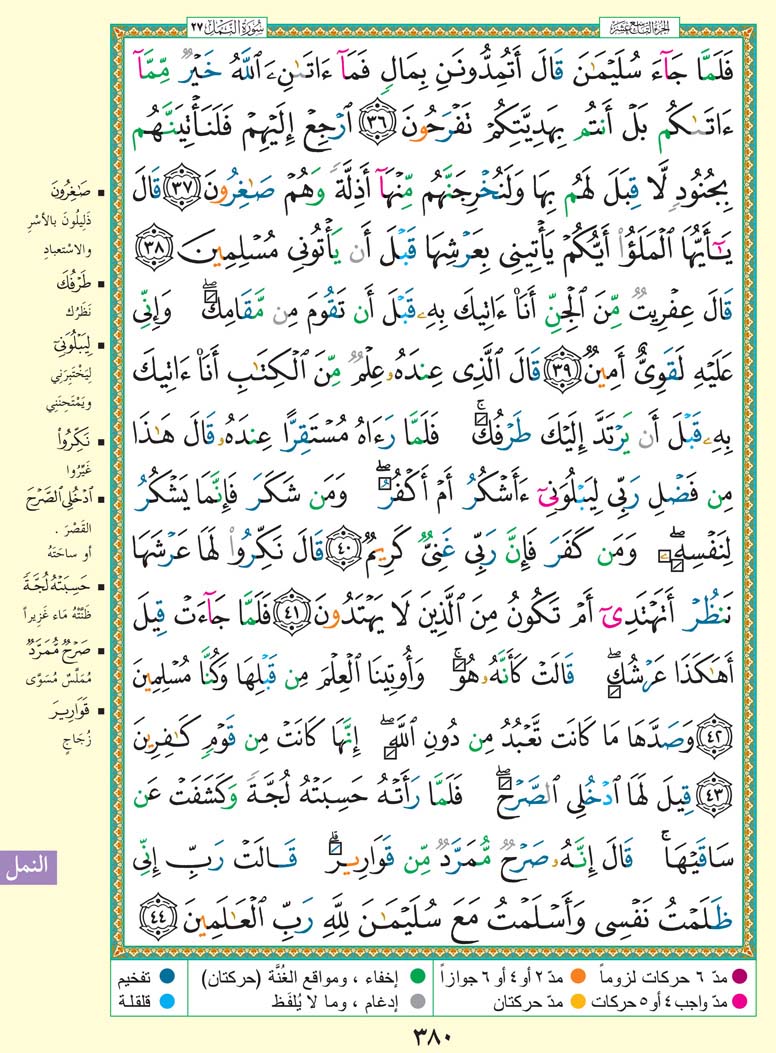 سُورَةُ النَّمْلِ ٢٧
الجُزْءُ التَّاسِعُ عَشَرَ
فَلَمَّا جَآءَ سُلَيْمَٰنَ قَالَ أَتُمِدُّونَنِ بِمَالٍ فَمَآ ءَاتَىٰنِۦَ ٱللَّهُ خَيْرٌ مِّمَّآ
ءَاتَىٰكُم بَلْ أَنتُم بِهَدِيَّتِكُمْ تَفْرَحُونَ ٣٦ ٱرْجِعْ إِلَيْهِمْ فَلَنَأْتِيَنَّهُم
بِجُنُودٍ لَّا قِبَلَ لَهُم بِهَا وَلَنُخْرِجَنَّهُم مِّنْهَآ أَذِلَّةً وَهُمْ صَٰغِرُونَ ٣٧ قَالَ
يَٰٓأَيُّهَا ٱلْمَلَؤُا۟ أَيُّكُمْ يَأْتِينِى بِعَرْشِهَا قَبْلَ أَن يَأْتُونِى مُسْلِمِينَ ٣٨
قَالَ عِفْرِيتٌ مِّنَ ٱلْجِنِّ أَنَا۠ ءَاتِيكَ بِهِۦ قَبْلَ أَن تَقُومَ مِن مَّقَامِكَ ۖ وَإِنِّى
عَلَيْهِ لَقَوِىٌّ أَمِينٌ ٣٩ قَالَ ٱلَّذِى عِندَهُۥ عِلْمٌ مِّنَ ٱلْكِتَٰبِ أَنَا۠ ءَاتِيكَ
بِهِۦ قَبْلَ أَن يَرْتَدَّ إِلَيْكَ طَرْفُكَ ۚ فَلَمَّا رَءَاهُ مُسْتَقِرًّا عِندَهُۥ قَالَ هَٰذَا
مِن فَضْلِ رَبِّى لِيَبْلُوَنِىٓ ءَأَشْكُرُ أَمْ أَكْفُرُ ۖ وَمَن شَكَرَ فَإِنَّمَا يَشْكُرُ
لِنَفْسِهِۦ ۖ وَمَن كَفَرَ فَإِنَّ رَبِّى غَنِىٌّ كَرِيمٌ ٤٠ قَالَ نَكِّرُوا۟ لَهَا عَرْشَهَا
نَنظُرْ أَتَهْتَدِىٓ أَمْ تَكُونُ مِنَ ٱلَّذِينَ لَا يَهْتَدُونَ ٤١ فَلَمَّا جَآءَتْ قِيلَ
أَهَٰكَذَا عَرْشُكِ ۖ قَالَتْ كَأَنَّهُۥ هُوَ ۚ وَأُوتِينَا ٱلْعِلْمَ مِن قَبْلِهَا وَكُنَّا مُسْلِمِينَ
٤٢ وَصَدَّهَا مَا كَانَت تَّعْبُدُ مِن دُونِ ٱللَّهِ ۖ إِنَّهَا كَانَتْ مِن قَوْمٍ كَٰفِرِينَ
٤٣ قِيلَ لَهَا ٱدْخُلِى ٱلصَّرْحَ ۖ فَلَمَّا رَأَتْهُ حَسِبَتْهُ لُجَّةً وَكَشَفَتْ عَن
سَاقَيْهَا ۚ قَالَ إِنَّهُۥ صَرْحٌ مُّمَرَّدٌ مِّن قَوَارِيرَ ۗ قَالَتْ رَبِّ إِنِّى
ظَلَمْتُ نَفْسِى وَأَسْلَمْتُ مَعَ سُلَيْمَٰنَ لِلَّهِ رَبِّ ٱلْعَٰلَمِينَ ٤٤
▪ صَٰغِرُونَ
ذَلِيلُونَ بالأَسْرِ
والاسْتعبادِ
▪ طَرْفُكَ
نَظَرُك
▪ لِيَبْلُوَنِىٓ
لِيَخْتَبِرَنِي
ويَمْتَحِنَنِي
▪ نَكِّرُوا۟
غَيِّرُوا
▪ ٱدْخُلِى ٱلصَّرْحَ
القَصْرَ .
أو ساحَتَهُ
▪ حَسِبَتْهُ لُجَّةً
ظَنَّتْهُ مَاء غَزِيراً
▪ صَرْحٌ مُّمَرَّدٌ
مُمَلَّسٌ مُسَوَّى
▪ قَوَارِيرَ
زُجَاجٍ
النمل
مدّ ٦ حركات لزوماً
مدّ ٢ أو ٤ أو ٦ جوازاً
إخفاء ، ومواقع الغُنَّة (حركتان)
تفخيم
مدّ واجب ٤ أو ٥ حركات
مدّ حركتان
إدغام ، وما لا يُلفَظ
قلقلة
٣٨٠